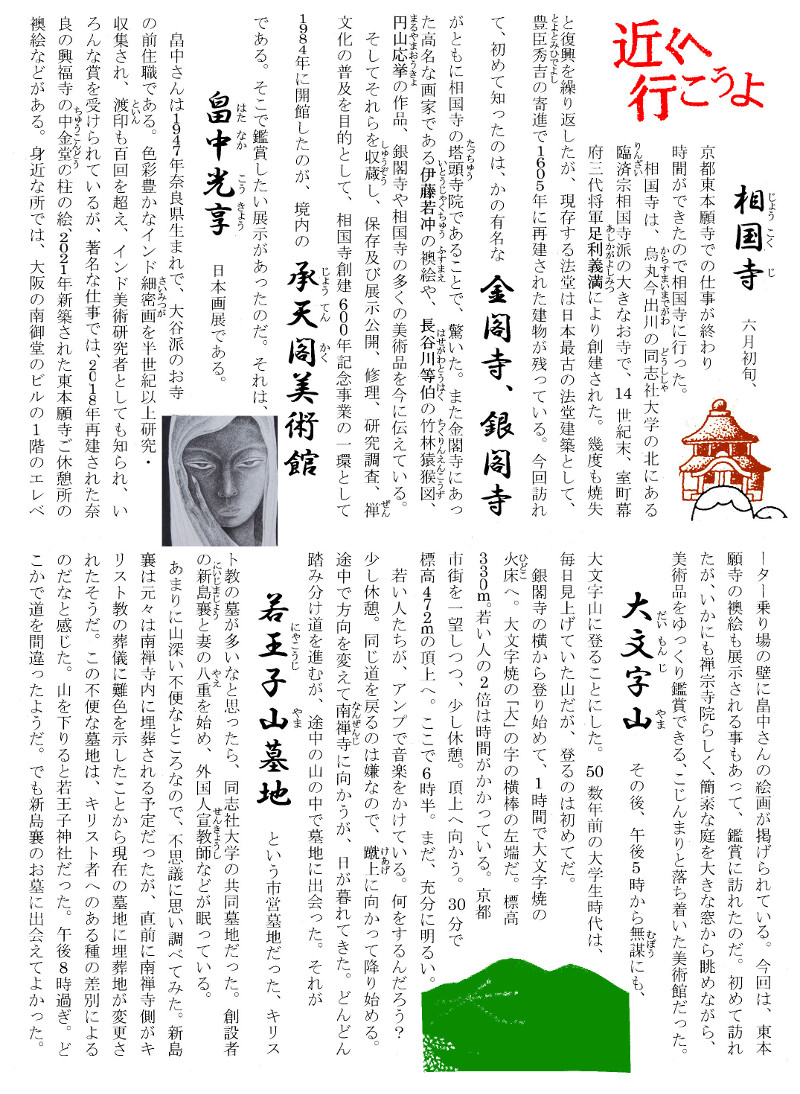 近くへ
行こうよ
相国寺
じょうこくじ
六月初旬、
京都東本願寺での仕事が終わり
時間ができたので相国寺に行った。
相国寺は、烏丸今出川の同志社大学の北にある
からすまいまでがわ どうししゃ
臨済宗相国寺派の大きなお寺で、14世紀末、室町幕
りんざい
府三代将軍足利義満により創建された。幾度も焼失
あしかがよしみつ
と復興を繰り返したが、現存する法堂は日本最古の法堂建築として、
豊臣秀吉の寄進で1605年に再建された建物が残っている。今回訪れ
とよとみひでよし
て、初めて知ったのは、かの有名な
金閣寺、銀閣寺
がともに相国寺の塔頭寺院であることで、驚いた。また金閣寺にあっ
たっちゅう
た高名な画家である伊藤若冲の襖絵や、長谷川等伯の竹林猿猴図、
いとうじゃくちゅう ふすまえ はせがわとうはく ちくりんえんこうず
円山応挙の作品、銀閣寺や相国寺の多くの美術品を今に伝えている。
まるやまおうきょ
そしてそれらを収蔵し、保存及び展示公開、修理、研究調査、禅
しゅうぞう ぜん
文化の普及を目的として、相国寺創建600年記念事業の一環として
1984年に開館したのが、境内の
承天閣美術館
じょうてんかく
である。そこで鑑賞したい展示があったのだ。それは、
畠中光享
はたなかこうきょう
日本画展である。
畠中さんは1947年奈良県生まれで、大谷派のお寺
の前住職である。色彩豊かなインド細密画を半世紀以上研究・
さいみつが
収集され、渡印も百回を超え、インド美術研究者としても知られ、い
といん
ろんな賞を受けられているが、著名な仕事では、2018年再建された奈
良の興福寺の中金堂の柱の絵、2021年新築された東本願寺ご休憩所の
ちゅうこんどう
襖絵などがある。身近な所では、大阪の南御堂のビルの1階のエレベ
ーター乗り場の壁に畠中さんの絵画が掲げられている。今回は、東本
願寺の襖絵も展示される事もあって、鑑賞に訪れたのだ。初めて訪れ
たが、いかにも禅宗寺院らしく、簡素な庭を大きな窓から眺めながら、
美術品をゆっくり鑑賞できる、こじんまりと落ち着いた美術館だった。
大文字山
だいもんじやま
その後、午後5時から無謀にも、
むぼう
大文字山に登ることにした。50数年前の大学生時代は、
毎日見上げていた山だが、登るのは初めてだ。
銀閣寺の横から登り始めて、1時間で大文字焼の
火床へ。大文字焼の「大」の字の横棒の左端だ。標高
ひどこ
330m。若い人の2倍は時間がかかっている。京都
市街を一望しつつ、少し休憩。頂上へ向かう。30分で
標高472mの頂上へ。ここで6時半。まだ、充分に明るい。
若い人たちが、アンプで音楽をかけている。何をするんだろう?
少し休憩。同じ道を戻るのは嫌なので、蹴上に向かって降り始める。
けあげ
途中で方向を変えて南禅寺に向かうが、日が暮れてきた。どんどん
なんぜんじ
踏み分け道を進むが、途中の山の中で墓地に出会った。それが
若王子山墓地
にゃこうじやま
という市営墓地だった、キリス
ト教の墓が多いなと思ったら、同志社大学の共同墓地だった。創設者
の新島襄と妻の八重を始め、外国人宣教師などが眠っている。
にいじまじょう やえ せんきょうし
あまりに山深い不便なところなので、不思議に思い調べてみた。新島
襄は元々は南禅寺内に埋葬される予定だったが、直前に南禅寺側がキ
リスト教の葬儀に難色を示したことから現在の墓地に埋葬地が変更さ
れたそうだ。この不便な墓地は、キリスト者へのある種の差別による
のだなと感じた。山を下りると若王子神社だった。午後8時過ぎ。ど
こかで道を間違ったようだ。でも新島襄のお墓に出会えてよかった。